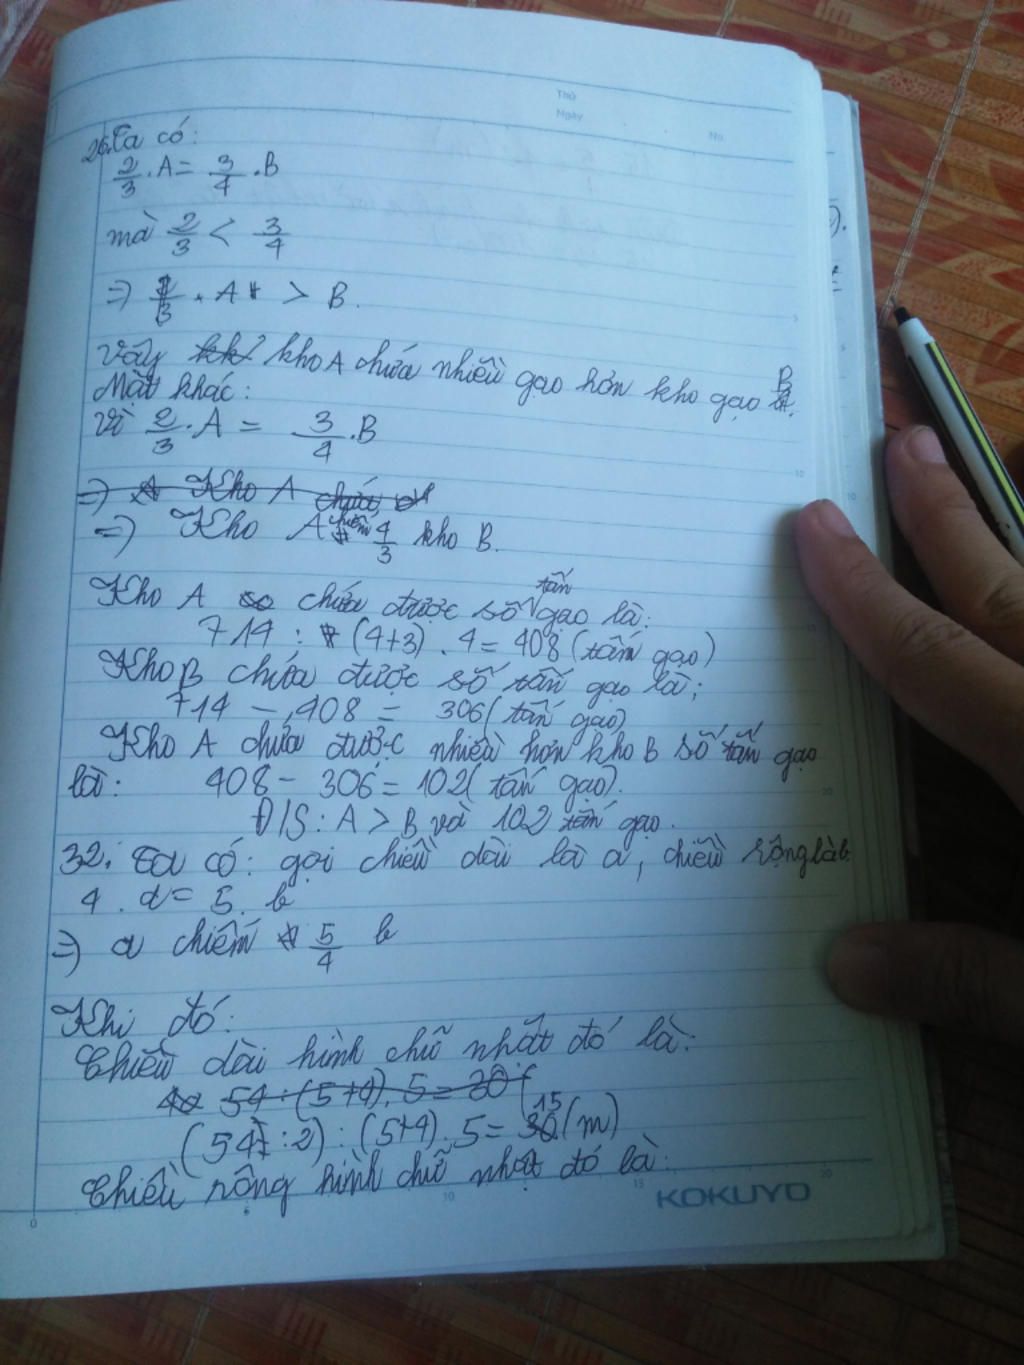 Thứ
Ngày
No.
26. Ta có:
2/3 . A = 3/4 . B
mà 2/3 < 3/4
=> A > B.
Vậy kho A chứa nhiều gạo hơn kho gạo B.
Mặt khác:
Vì 2/3 . A = 3/4 . B
=> Kho A chứa
=> Kho A chiếm 4/3 kho B.
Kho A chứa được số tấn gạo là:
714 : (4+3) . 4 = 408 (tấn gạo)
Kho B chứa được số tấn gạo là:
714 - 408 = 306 (tấn gạo)
Kho A chứa được nhiều hơn kho B số tấn gạo
là: 408 - 306 = 102 (tấn gạo).
Đ/S: A > B và 102 tấn gạo.
32. Ta có: gọi chiều dài là a, chiều rộng là b
4 . a = 5 . b
=> a chiếm 5/4 b
Khi đó:
Chiều dài hình chữ nhật đó là:
54 : (5+4) . 5 = 30 (
(54 : 2) : (5+4) . 5 = 15 (m)
Chiều rộng hình chữ nhật đó là:
KOKUYO